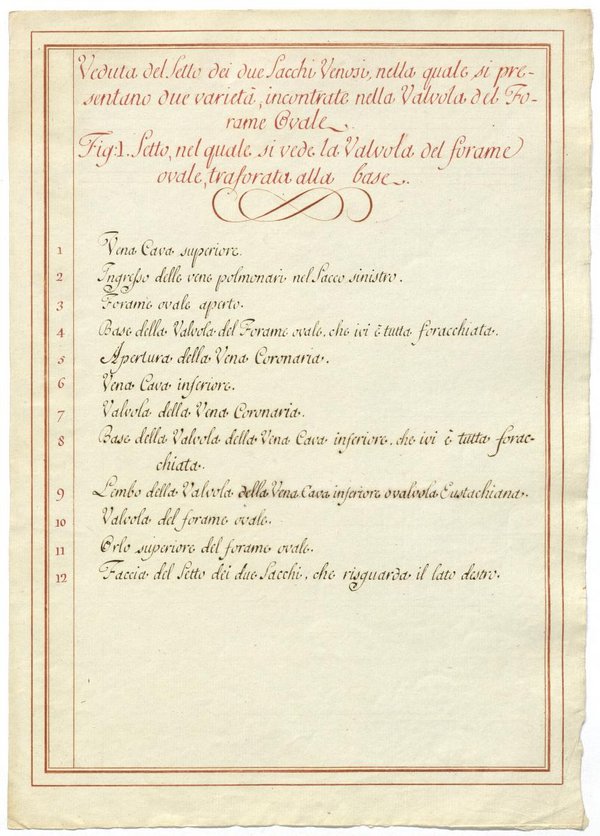 Veduta del Setto dei due Sacchi Venosi, nella quale si pre-
sentano due varietà, incontrate nella Valvola del Fo-
rame Ovale.
Fig: I. Setto, nel quale si vede la Valvola del forame
ovale, traforata alla base.
1 Vena Cava superiore.
2 Ingresso delle vene polmonari nel Sacco sinistro.
3 Forame ovale aperto.
4 Base della Valvola del Forame ovale, che ivi è tutta foracchiata.
5 Apertura della Vena Coronaria.
6 Vena Cava inferiore.
7 Valvola della Vena Coronaria.
8 Base della Valvola della Vena Cava inferiore, che ivi è tutta forac-
chiata.
9 Lembo della Valvola della Vena Cava inferiore o valvola Eustachiana.
10 Valvola del forame ovale.
11 Orlo superiore del forame ovale.
12 Faccia del Setto dei due Sacchi, che risguarda il lato destro.